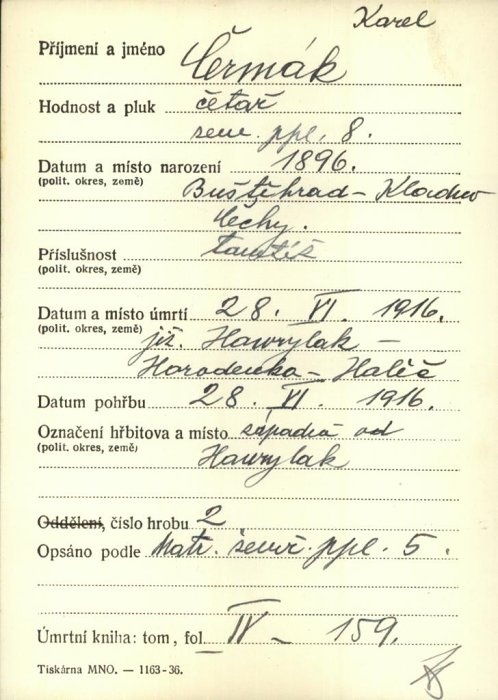 Karel
Příjmení a jméno Čermák
Hodnost a pluk četař
zem. ppl. 8.
Datum a místo narození 1896.
(polit. okres, země) Buštěhrad - Kladno
Čechy.
Příslušnost tamtéž
(polit. okres, země)
Datum a místo úmrtí 28. VI. 1916.
(polit. okres, země) již. Hawrylak -
Horodenka - Halič
Datum pohřbu 28. VI. 1916.
Označení hřbitova a místo západně od
(polit. okres, země) Hawrylak
Oddělení, číslo hrobu 2
Opsáno podle Matr. zem. ppl. 5.
Úmrtní kniha: tom, fol. IV - 159.
Tiskárna MNO. — 1163-36.